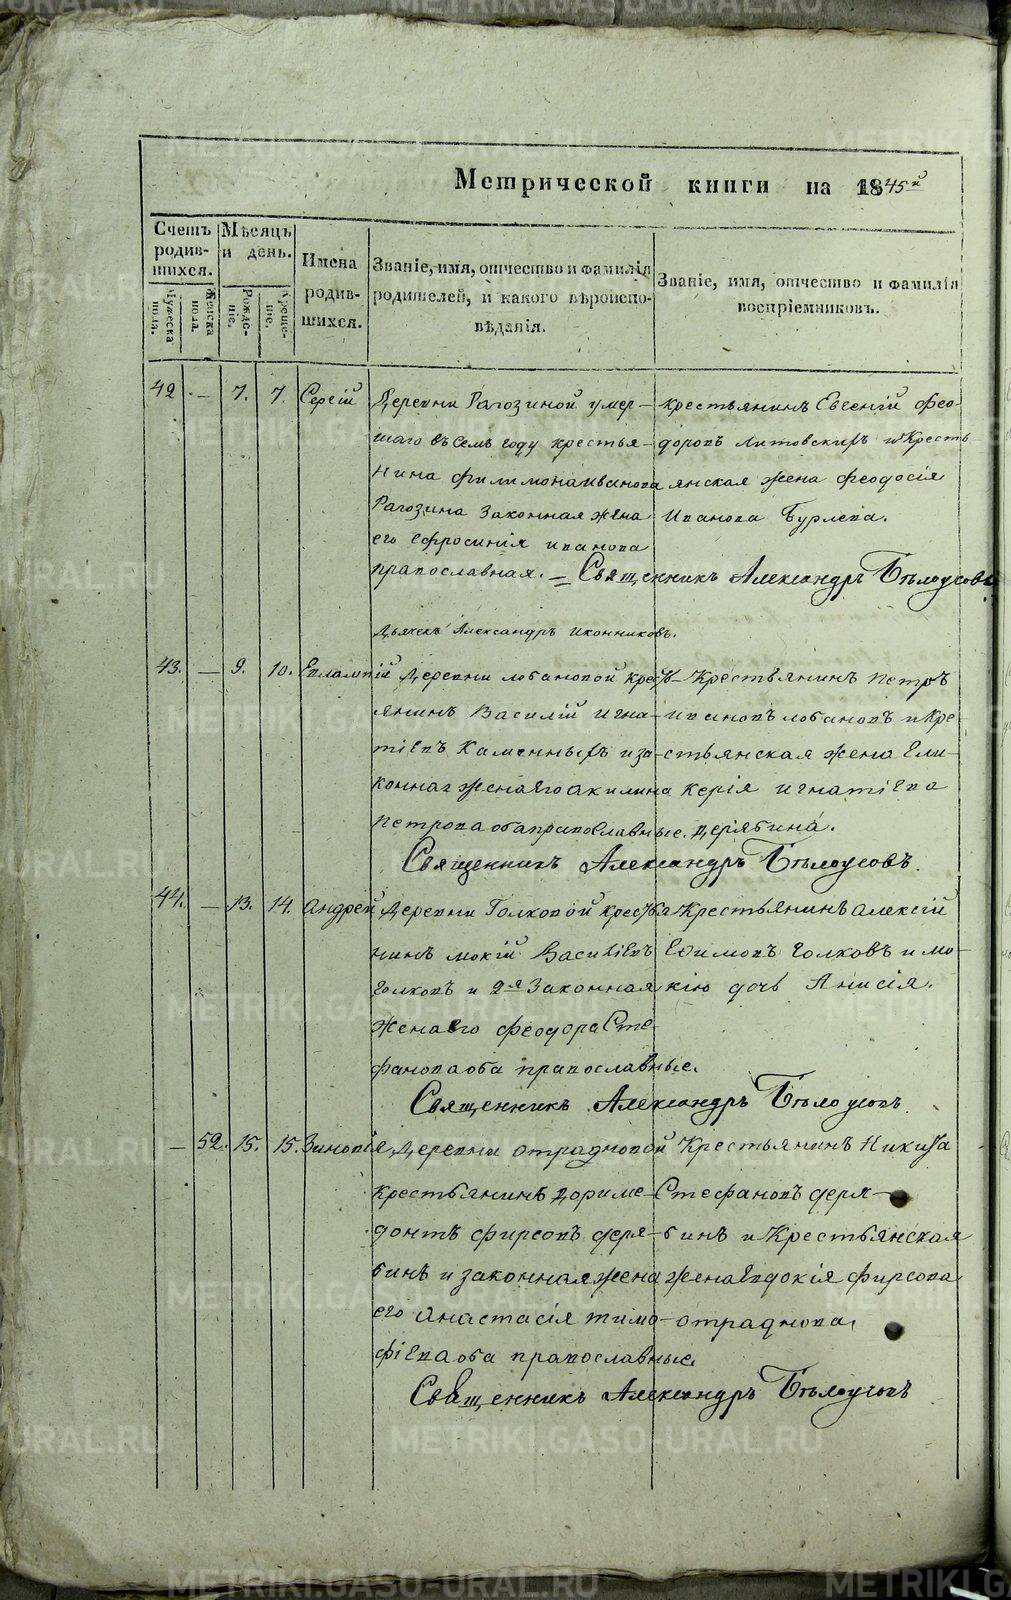 Метрической книги на 1845й
Счетъ родив-шихся.
Мѣсяцъ и день.
Имена родив-шихся.
Званіе, имя, отчество и фамилія родителей, и какого вѣроиспо-вѣданія.
Званіе, имя, отчество и фамилія воспріемниковъ.
Мужеска пола.
Женска пола.
Рожде-ніе.
Креще-ніе.
42 — 7. 7. Сергій
Деревни Рагозиной умер-
шаго въ семъ году крестья-
нина Филимона Иванова
Рагозина законная жена
его Ефросинія Иванова
православная. —
крестьянинъ Евгеній Фео-
доровъ Литовскихъ и Кресть-
янская жена Феодосія
Иванова Бурлева.
Священникъ Александръ Бѣлоусовъ
Дьячекъ Александръ Иконниковъ.
43. — 9. 10. Евлампій
Деревни Лобановой Кресть-
янинъ Василій Игна-
тіевъ Каменныхъ и за-
конная жена его Акилина
Петрова оба православные.
Крестьянинъ Петръ
Ивановъ Лобановъ и Кре-
стьянская жена Гли-
керія Игнатіева
Дерябина.
Священникъ Александръ Бѣлоусовъ.
44. — 13. 14. Андрей
Деревни Голковой крестья
нинъ Мокій Василіевъ
Голковъ и 2я законная
жена его Феодора Сте-
фанова оба православные.
Крестьянинъ Алексій
Ефимовъ Голковъ и Мо-
кію дочь Анисія.
Священникъ Александръ Бѣлоусовъ.
— 52. 15. 15. Зиновія
Деревни Отрадновой
крестьянинъ Дориме-
донтъ Фирсовъ Деря-
бинъ и законная жена
его Анастасія Тимо-
фіева оба православные.
Крестьянинъ Никита
Стефановъ Деря-
бинъ и Крестьянская
жена Евдокія Фирсова
Отраднова.
Священникъ Александръ Бѣлоусовъ
METRIKI.GASO-URAL.RU